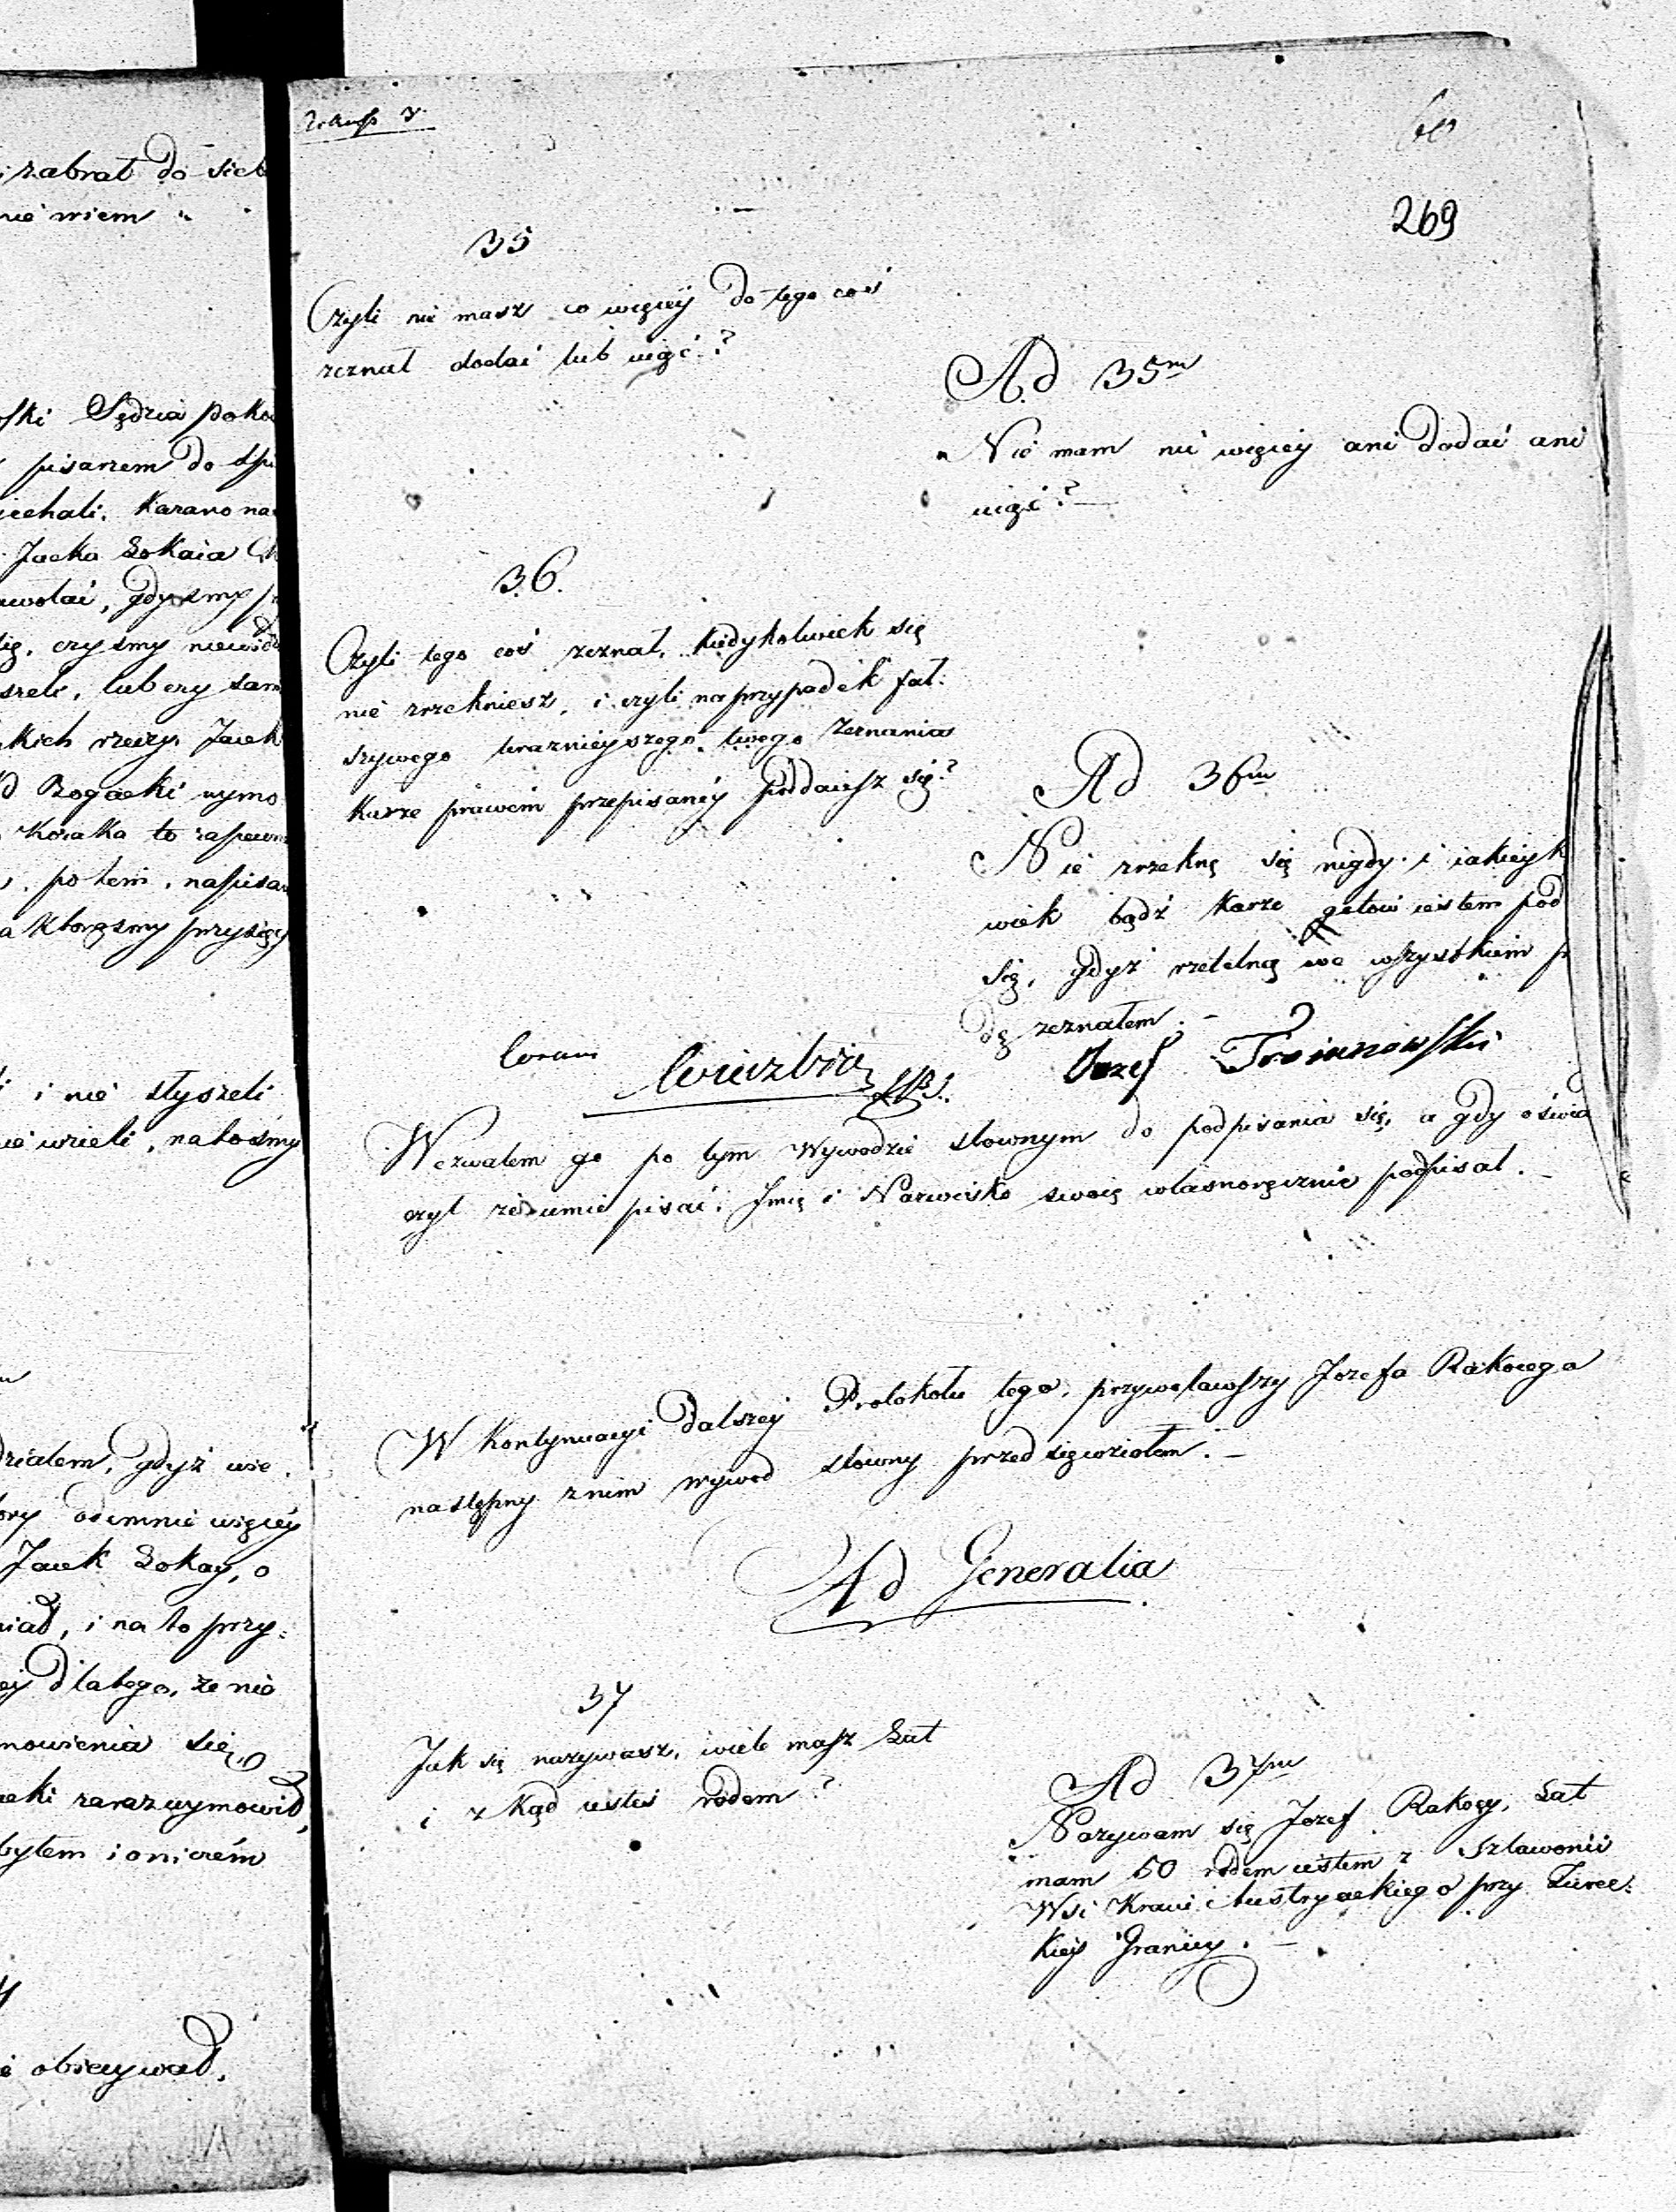 zabrał do sieb
nie wiem
ski Sędzia poko
pisarzem do
iechali. Kazano na
Jacka Lokaia
awołać, gdyśmy
się, czyśmy niewid
szeli, lub czy sam
kich rzeczy Jacek
d Rogacki wymo
Koziaka to zapewn
potem, napisa
a którąśmy przysięg
i nie słyszeli
nie wzieli, natośmy
działem, gdyż wie
ory odemnie więcéy
Jacek Lokay, o
niał, i na to przy:
ey dlatego, że nie
mowienia się
cki zaraz wymowił,
byłem i oniczém
obiecywał.
Arkusz 3.
60
269
35
Czyli nie masz co więcéy do tego coś
zeznał dodać lub uiąć?
Ad 35m
Nie mam nic więcéy ani dodać ani
uiąć? —
36.
Czyli tego coś zeznał, kiedykolwiek się
nie zrzekniesz, i czyli na przypadek fał:
szywego teraznieyszego twego zeznania
karze prawem przepisanéy poddaiesz się?
Ad 36m
Nie zrzeknę się nigdy i iakieyk
wiek bądź karze gotów iestem pod
się, gdyż rzetelną we wszystkiem p
dę zeznałem. —
Coram
Jozef Troianowski
Wezwałem go po tym Wywodzie słownym do podpisania się, a gdy oświa
czył że umie pisać, Imię i Nazwisko swoię własnoręcznie podpisał. —
W kontynuacyi dalszey Protokołu tego, przywoławszy Jozefa Rakocego
następny z nim wywod słowny przedsięwziołem. —
Ad Generalia
37
Jak się nazywasz, wiele masz Lat
i z kąd iesteś rodem?
Ad 37m
Nazywam się Jozef Rakocy, Lat
mam 50 rodem iestem z Szlawonii
Wsi Kraiu Austryackiego przy Turec:
kiey Granicy. —